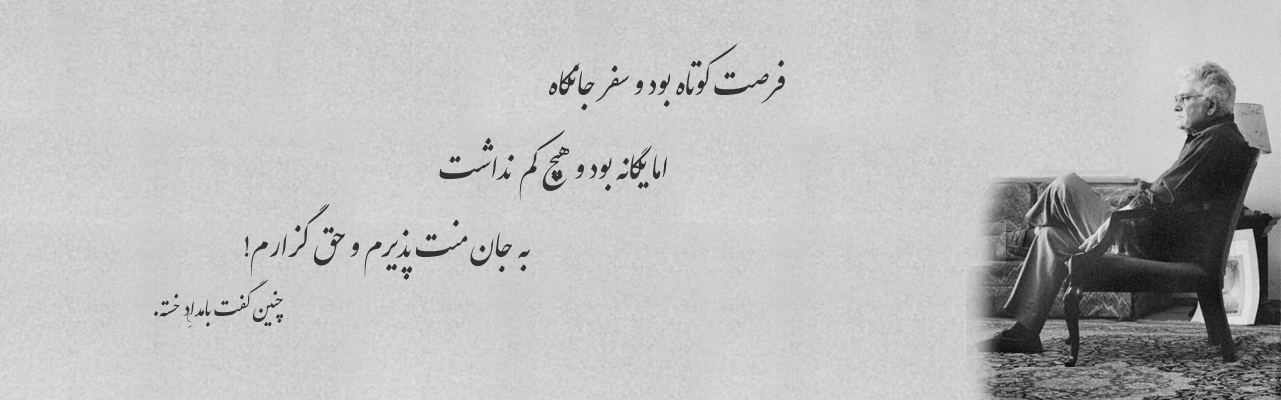 فرصت کوتاه بود و سفر جانکاه
اما یگانه بود و هیچ کم نداشت
به جان منت پذیرم و حق گزارم!
چنین گفت بامدادِ خسته.